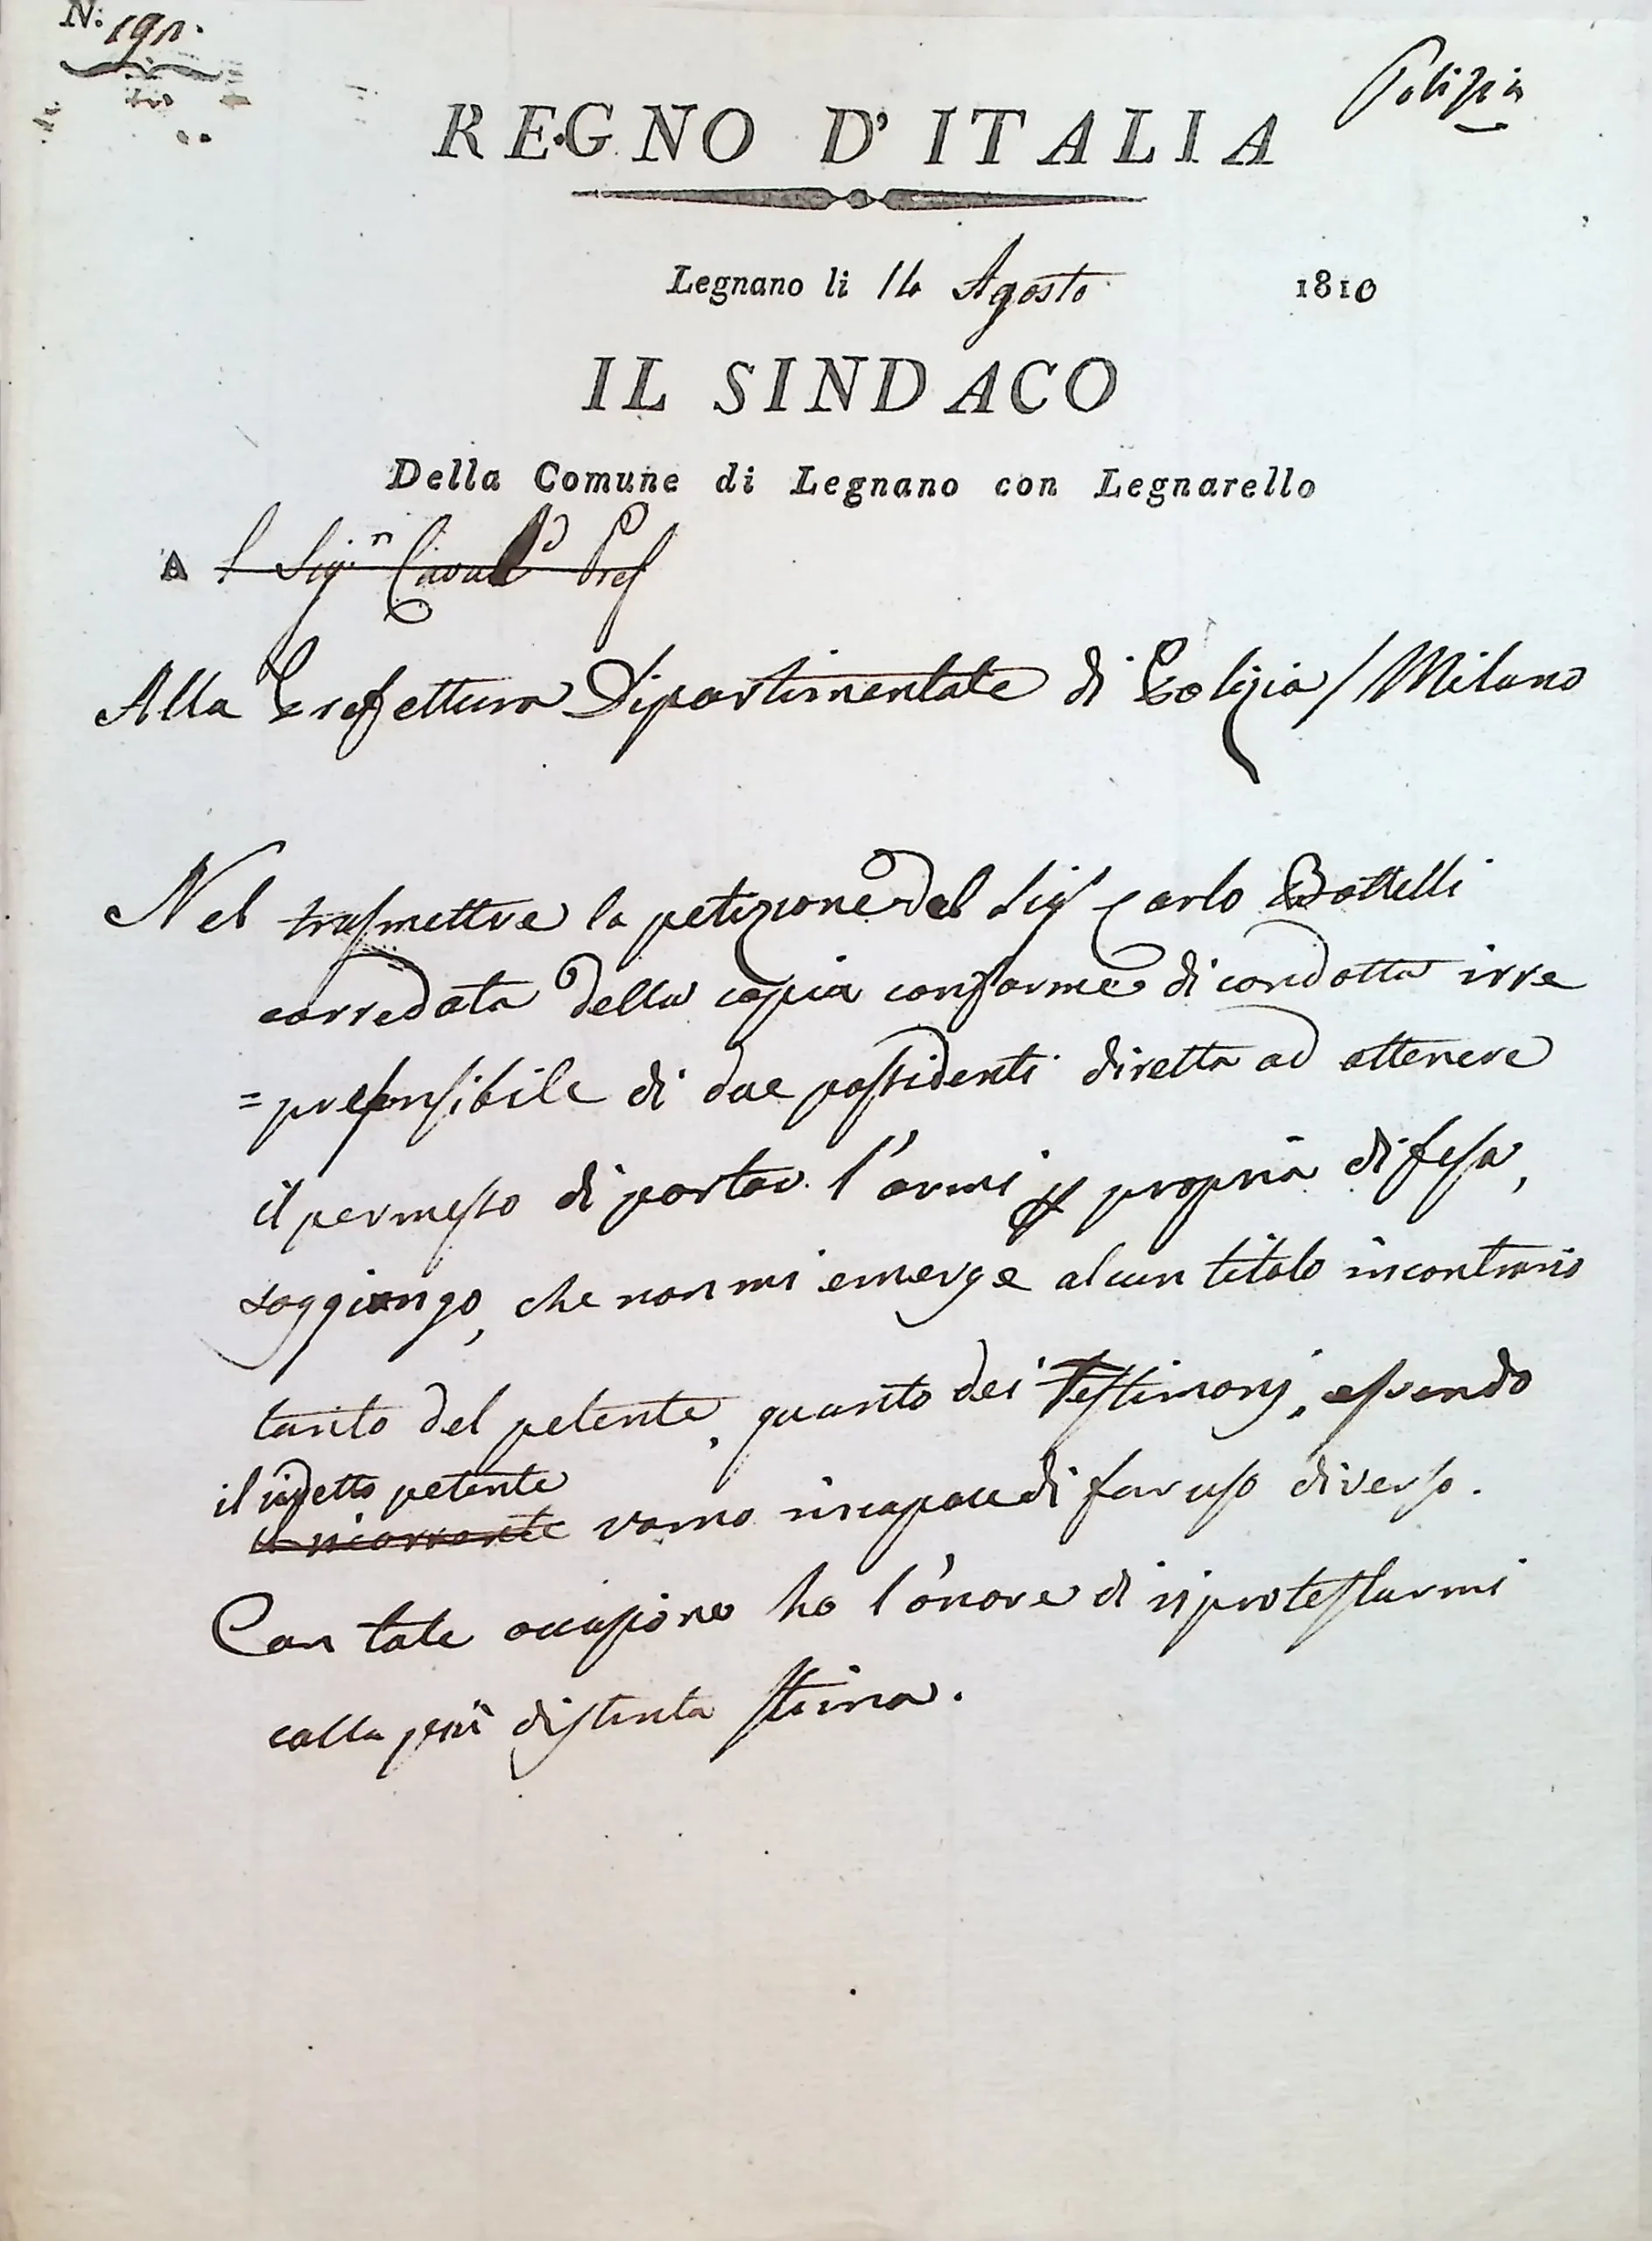 N: 191.
Polizia
REGNO D'ITALIA
Legnano li 14 Agosto 1810
IL SINDACO
Della Comune di Legnano con Legnarello
A l Sig.r Caval.e Pref
Alla Prefettura Dipartimentale di Polizia / Milano
Nel trasmettere la petizione del Sig.r Carlo Bottelli
corredata della copia conforme di condotta irre
=prensibile di due possidenti diretta ad ottenere
il permesso di portar l'armi p propria difesa,
soggiungo, che non mi emerge alcun titolo in contrario
tanto del petente, quanto dei Testimonj, essendo
il sudetto petente
il ricorrente uomo incapace di far uso diverso.
Con tale occasione ho l'onore di riprotestarmi
colla più distinta stima.